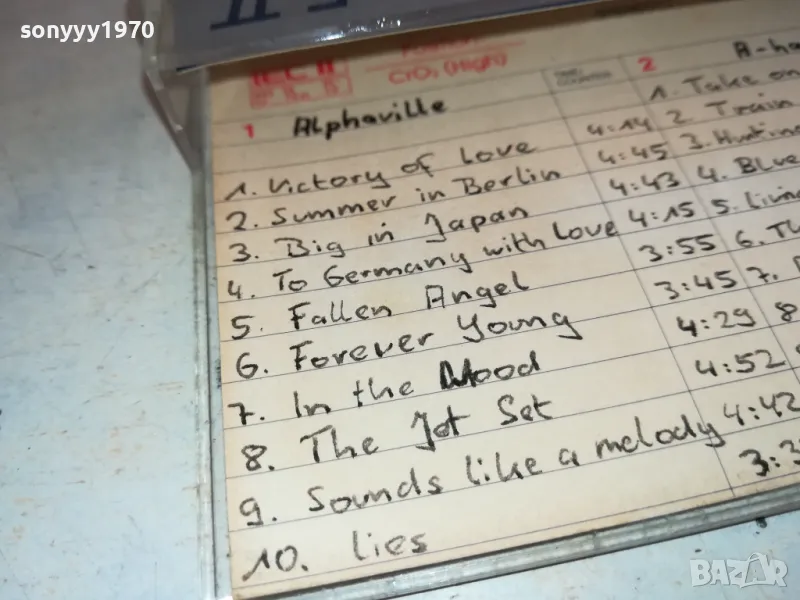 sonyyy1970
IEC II
Position
CrO₂ (High)
TIME/COUNTER
1 Alphaville
1. Victory of Love 4:14
2. Summer in Berlin 4:45
3. Big in Japan 4:43
4. To Germany with Love 4:15
5. Fallen Angel 3:55
6. Forever Young 3:45
7. In the Mood 4:29
8. The Jet Set 4:52
9. Sounds like a melody 4:42
10. Lies
2 A-ha
1. Take on
2. Train
3. Hunting
4. Blue
5. Living
6. Th
7.
8
BAZAR